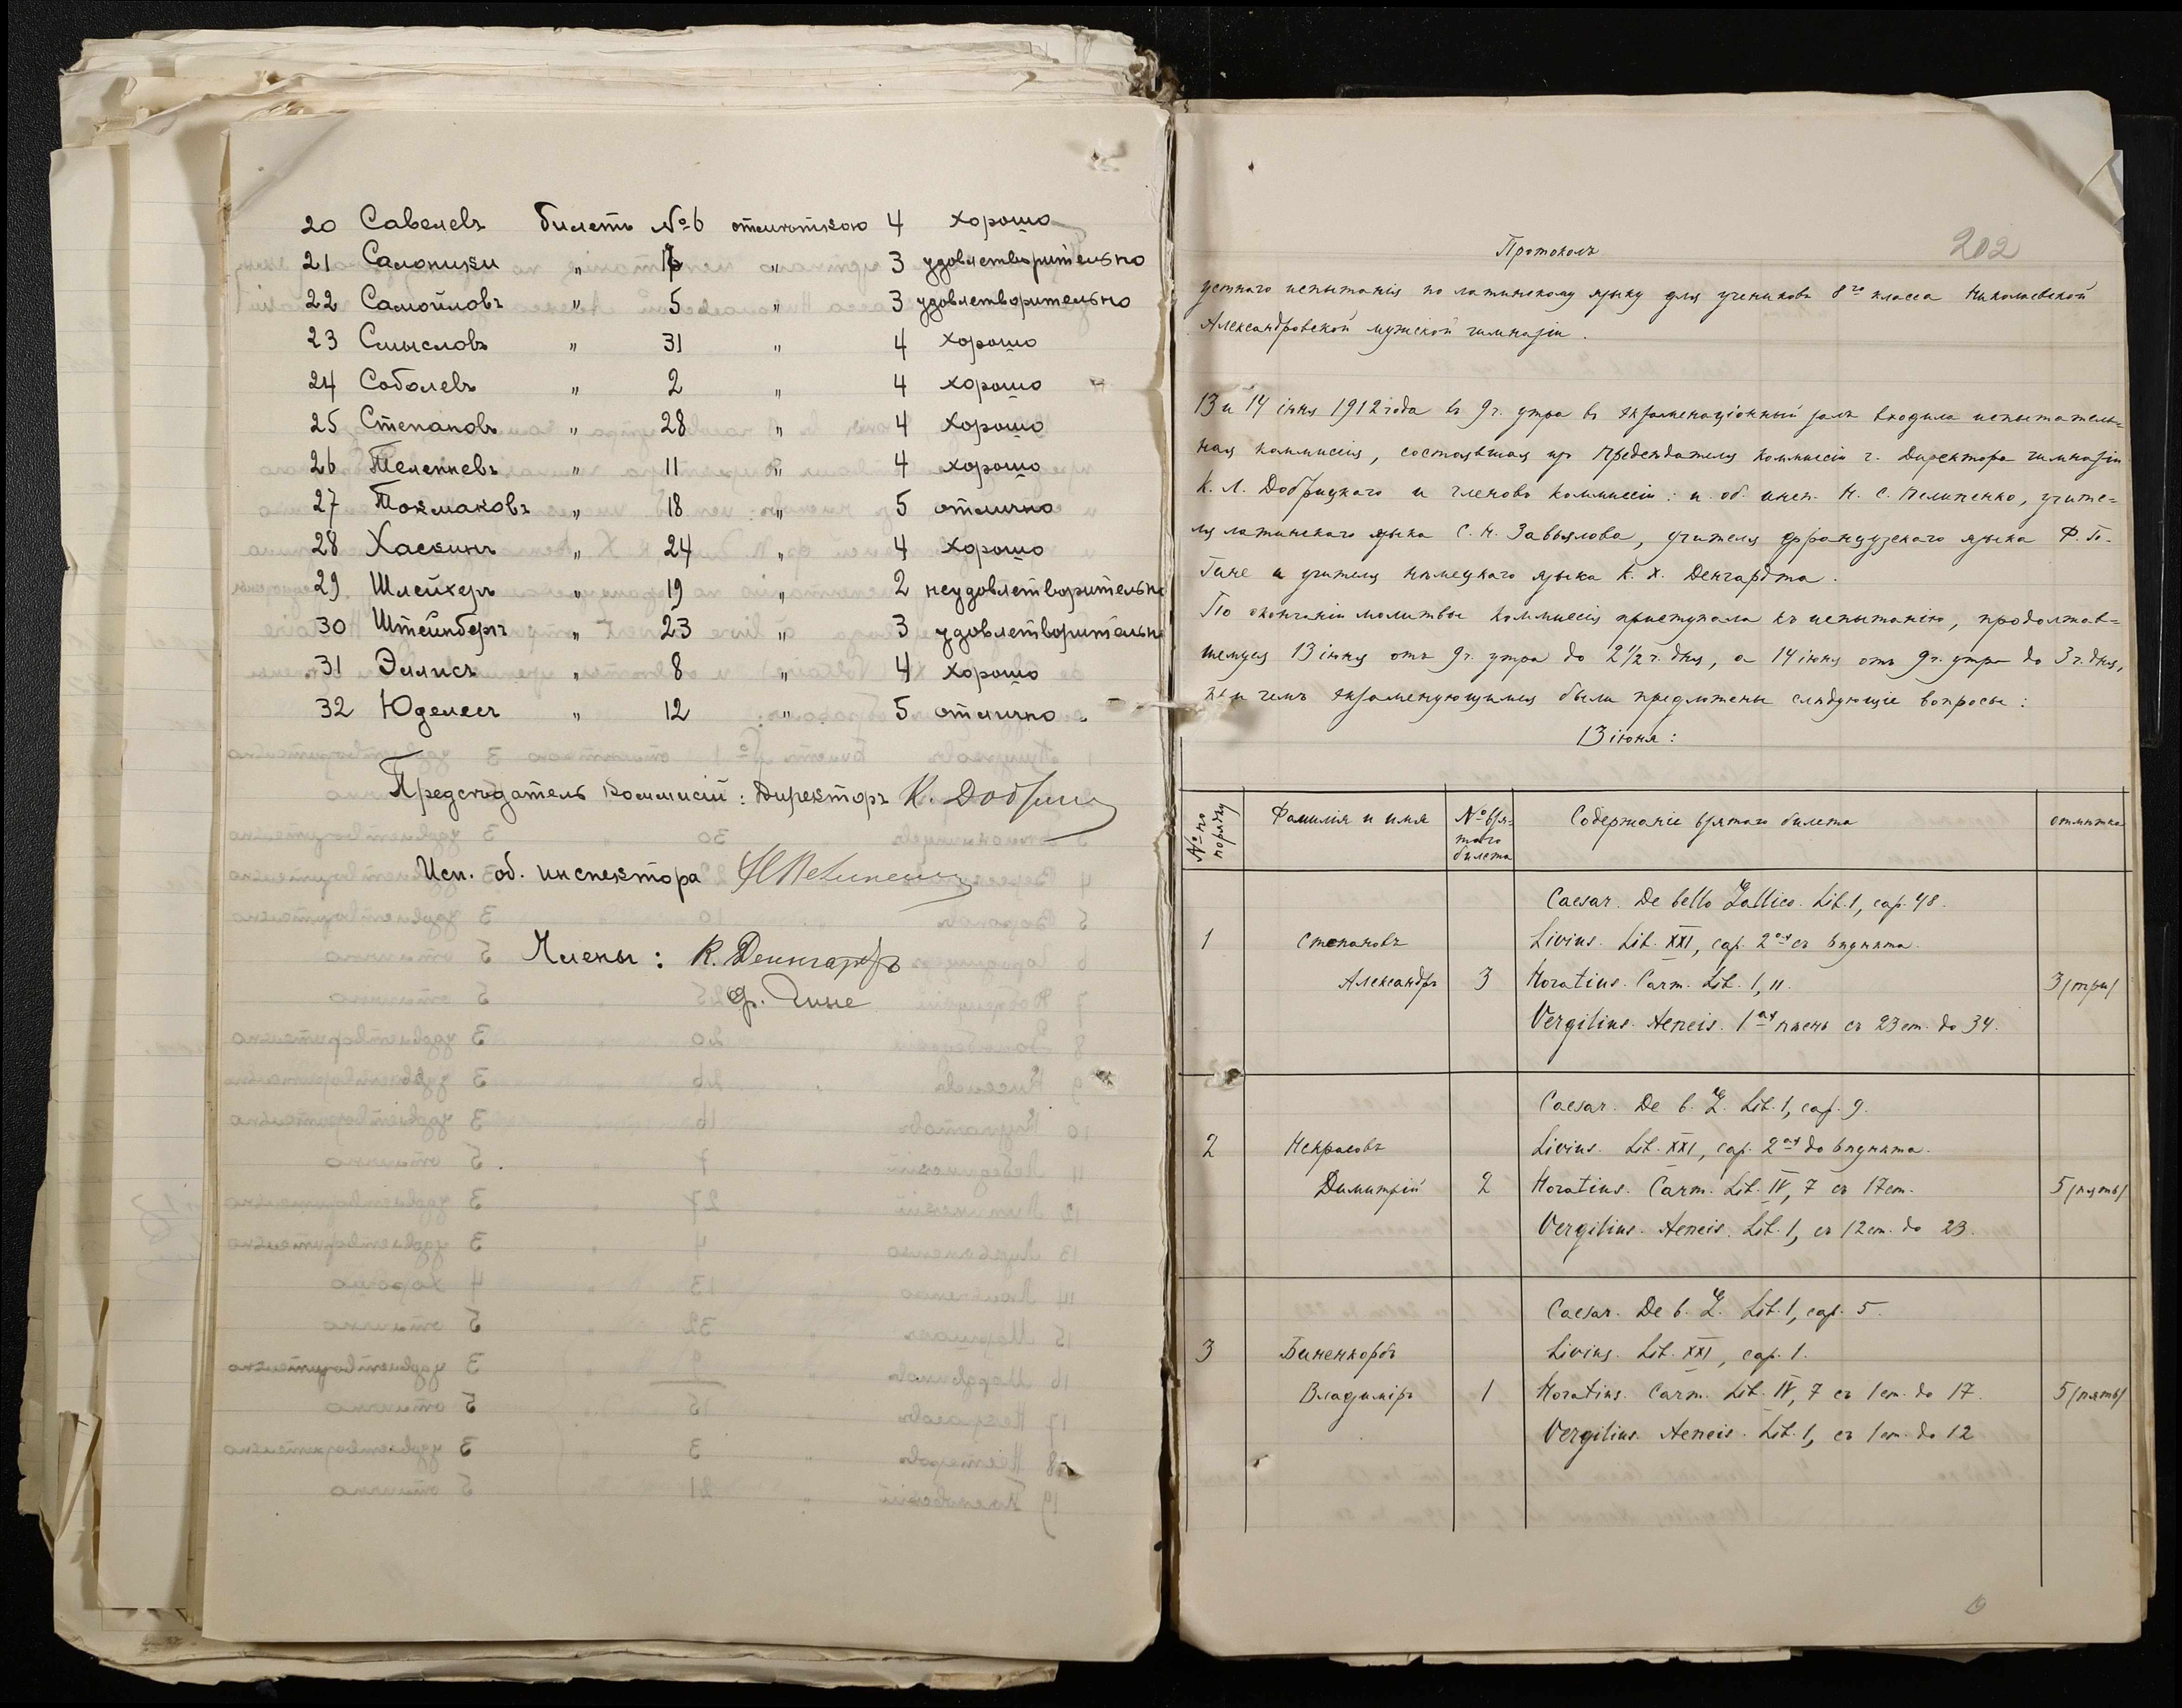 20 Савелевъ билетъ №6 отмѣткою 4 хорошо
21 Салоники „ „ 3 удовлетворительно
22 Самойловъ „ 5 „ 3 удовлетворительно
23 Смысловъ „ 31 „ 4 хорошо
24 Соболевъ „ 2 „ 4 хорошо
25 Степановъ „ 28 „ 4 хорошо
26 Телепневъ „ 11 „ 4 хорошо
27 Токмаковъ „ 18 „ 5 отлично
28 Хаскинъ „ 24 „ 4 хорошо
29 Шлейхеръ „ 19 „ 2 неудовлетворительно
30 Штейнбергъ „ 23 „ 3 удовлетворительно
31 Эллисъ „ 8 „ 4 хорошо
32 Юделесъ „ 12 „ 5 отлично.
Предсѣдатель Коммисіи: Директоръ К. Добр
Исп. об. инспектора
Члены: К. Денгардтъ
Ф. Гине
202
Протоколъ
устнаго испытанія по латинскому языку для учениковъ 8го класса Николаевской
Александровской мужской гимназіи.
13 и 14 іюня 1912 года въ 9 ч. утра въ экзаменаціонный залъ входила испытатель=
ная коммиссія, состоявшая изъ предсѣдателя коммиссіи г. Директора гимназіи
К. Л. Добрицкаго и членовъ коммиссіи: и. об. инсп. Н. С. Пелипенко, учите=
ля латинскаго языка С. Н. Завьялова, учителя французскаго языка Ф. Г.
Гине и учителя нѣмецкаго языка К. Х. Денгардта.
По окончаніи молитвы коммиссія приступала къ испытанію, продолжав=
шемуся 13 іюня отъ 9 ч. утра до 2 1/2 ч. дня, а 14 іюня отъ 9 ч. утра до 3 ч. дня,
при чемъ экзаменующимся были предложены слѣдующіе вопросы:
13 іюня:
№ по порядку Фамилія и имя № взя=таго билета Содержаніе взятаго билета отмѣтка
Caesar. De bello Gallico. Lib. 1, cap. 48.
1 Степановъ Livius. Lib. XXI, cap. 2ая съ вразумята.
Александръ 3 Horatius. Carm. Lib. 1, 11. 3 (три)
Vergilius. Aeneis. 1ая пѣснь съ 23 ст. до 34.
Caesar. De b. G. Lib. 1, cap. 9.
2 Некрасовъ Livius. Lib. XXI, cap. 2ая до
Димитрій 2 Horatius. Carm. Lib. IV, 7 съ 17 ст. 5 (пять)
Vergilius. Aeneis. Lib. 1, съ 12 ст. до 23.
Caesar. De b. G. Lib. 1, cap. 5.
3 Биненкорбъ Livius. Lib. XXI, cap. 1.
Владиміръ 1 Horatius. Carm. Lib. IV, 7 съ 1 ст. до 17. 5 (пять)
Vergilius. Aeneis. Lib. 1, съ 1 ст. до 12